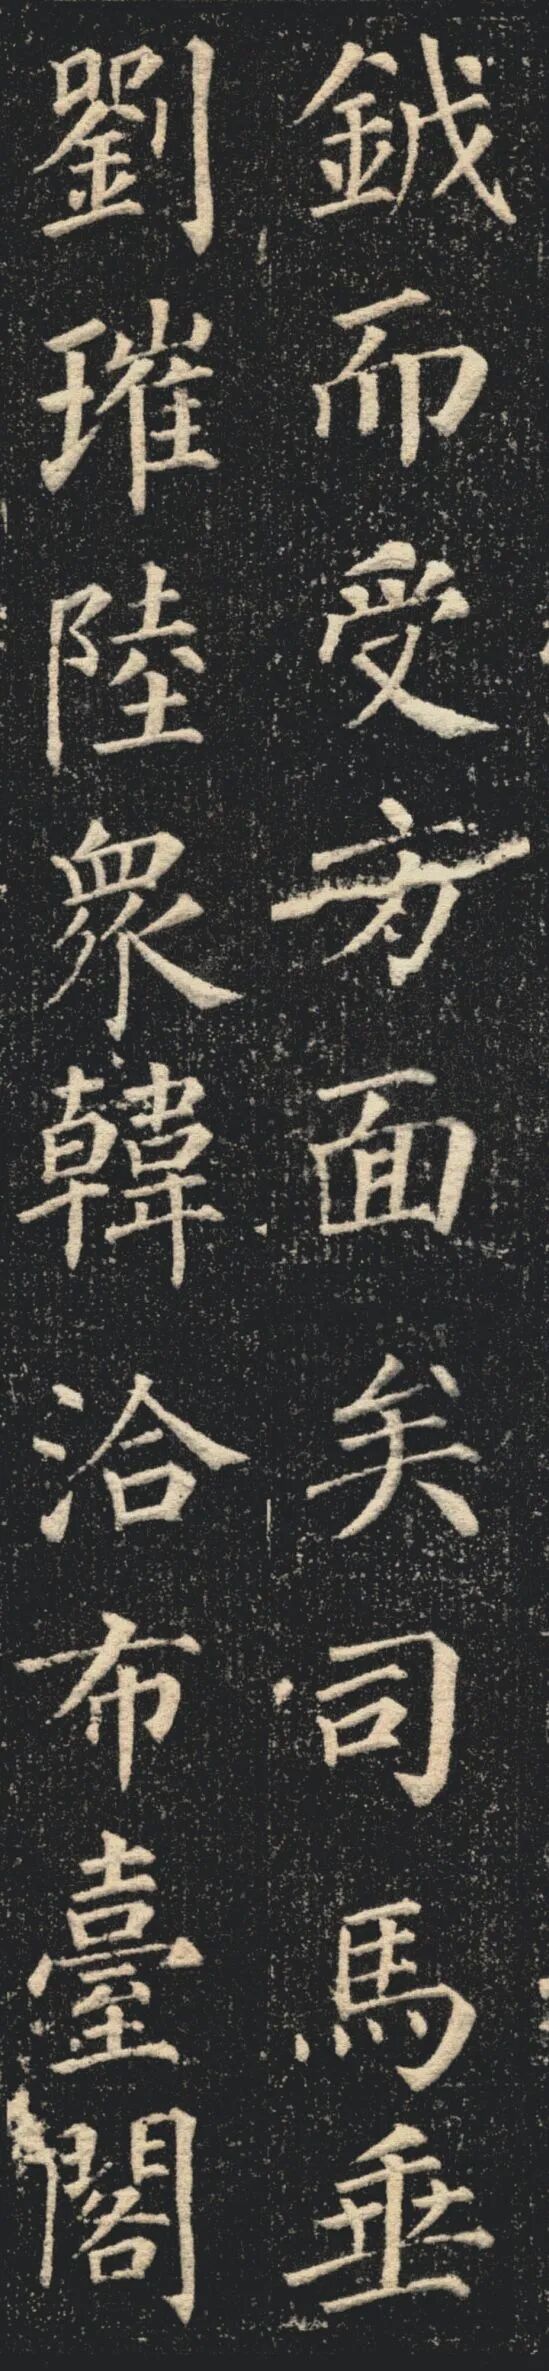 鉞而受方面矣司馬垂
劉璀陸衆韓洽布臺閣